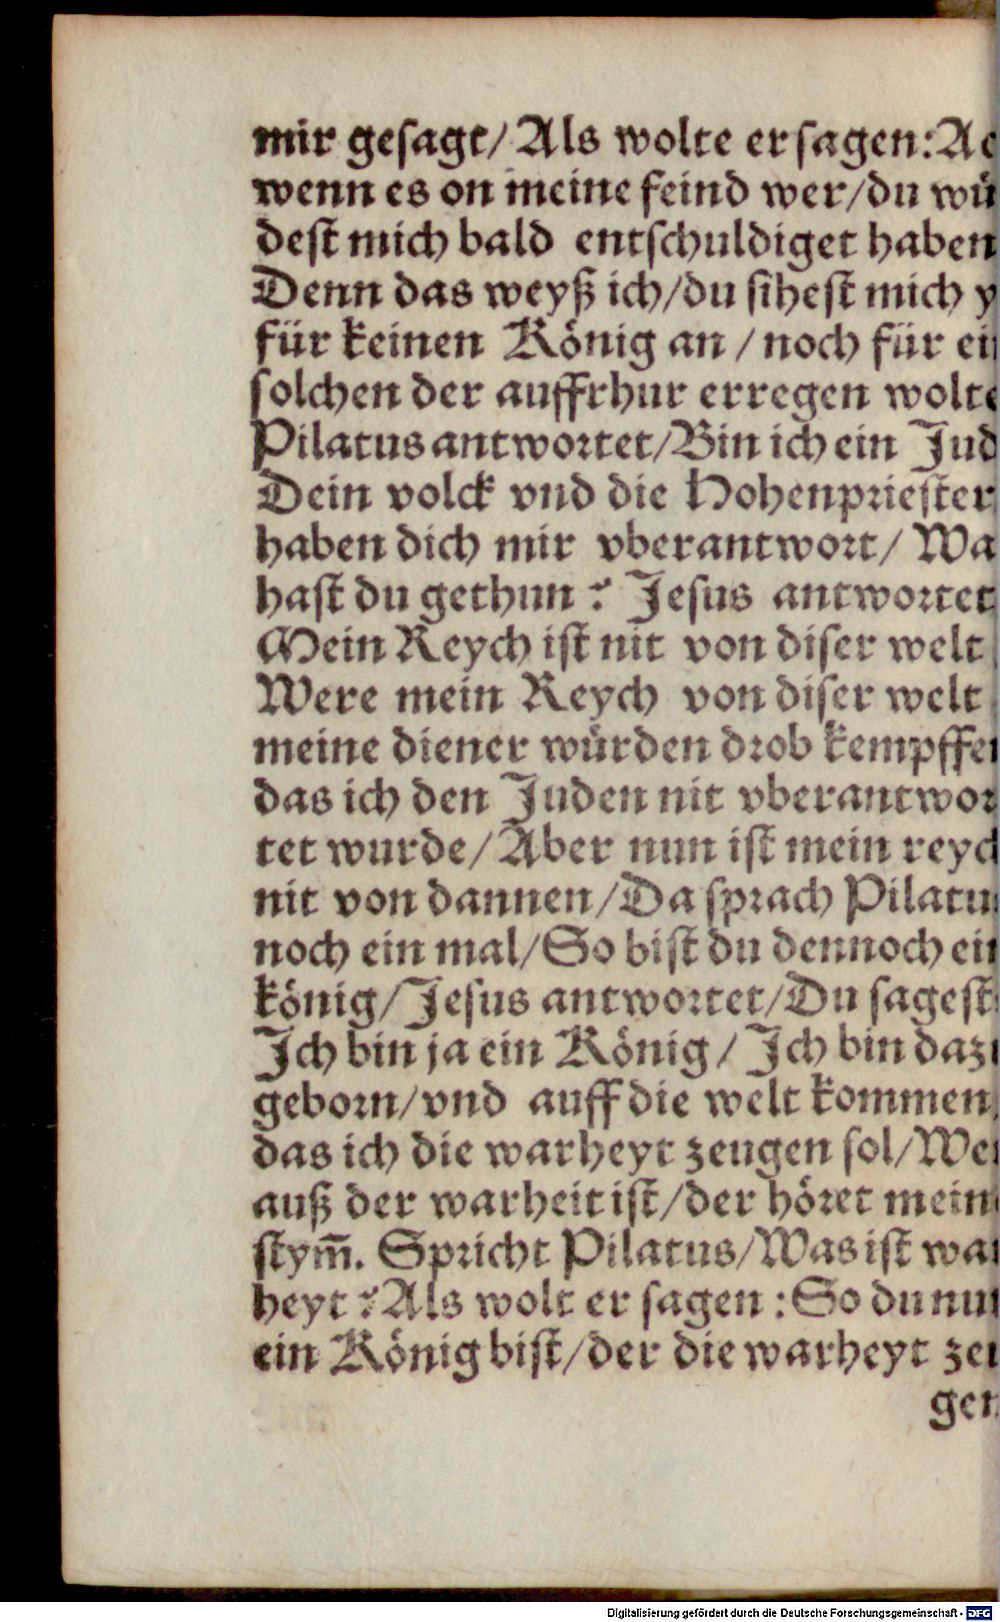 mir gesagt/ Als wolte er sagen: Ac
wenn es on meine feind wer/du wü
dest mich bald entschuldiget haben
Denn das weyß ich/du sihest mich y
für keinen König an / noch für ein
solchen der auffrhur erregen wolte
Pilatus antwortet/Bin ich ein Jud
Dein volck vnd die Hohenpriester
haben dich mir vberantwort/ Wa
hast du gethun? Jesus antwortet
Mein Reych ist nit von diser welt
Were mein Reych von diser welt
meine diener würden drob kempffen
das ich den Juden nit vberantwor
tet wurde/Aber nun ist mein reych
nit von dannen/Da sprach Pilatus
noch ein mal/So bist du dennoch ein
könig/Jesus antwortet/Du sagest
Ich bin ja ein König/ Ich bin dazu
geborn/vnd auff die welt kommen
das ich die warheyt zeugen sol/Wer
auß der warheit ist/der höret meine
stym̃. Spricht Pilatus/Was ist war
heyt? Als wolt er sagen: So du nun
ein König bist/der die warheyt zeu
gen
Digitalisierung gefördert durch die Deutsche Forschungsgemeinschaft - DFG